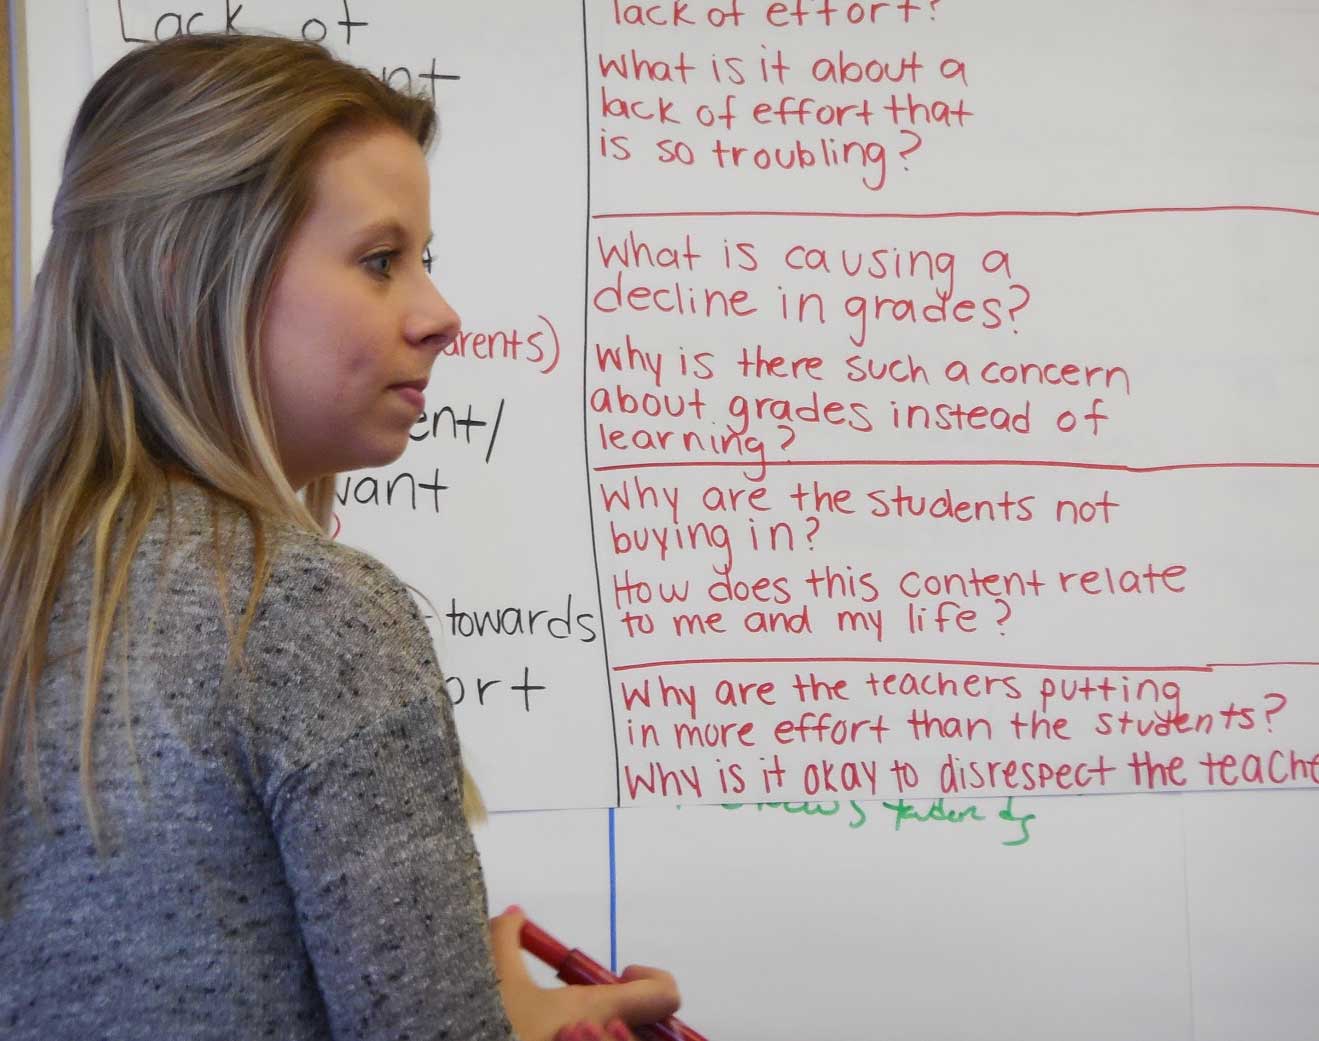 Lack of
lack of effort?
What is it about a
lack of effort that
is so troubling?
What is causing a
decline in grades?
Why is there such a concern
about grades instead of
learning?
Why are the students not
buying in?
How does this content relate
to me and my life?
towards
Why are the teachers putting
in more effort than the students?
Why is it okay to disrespect the